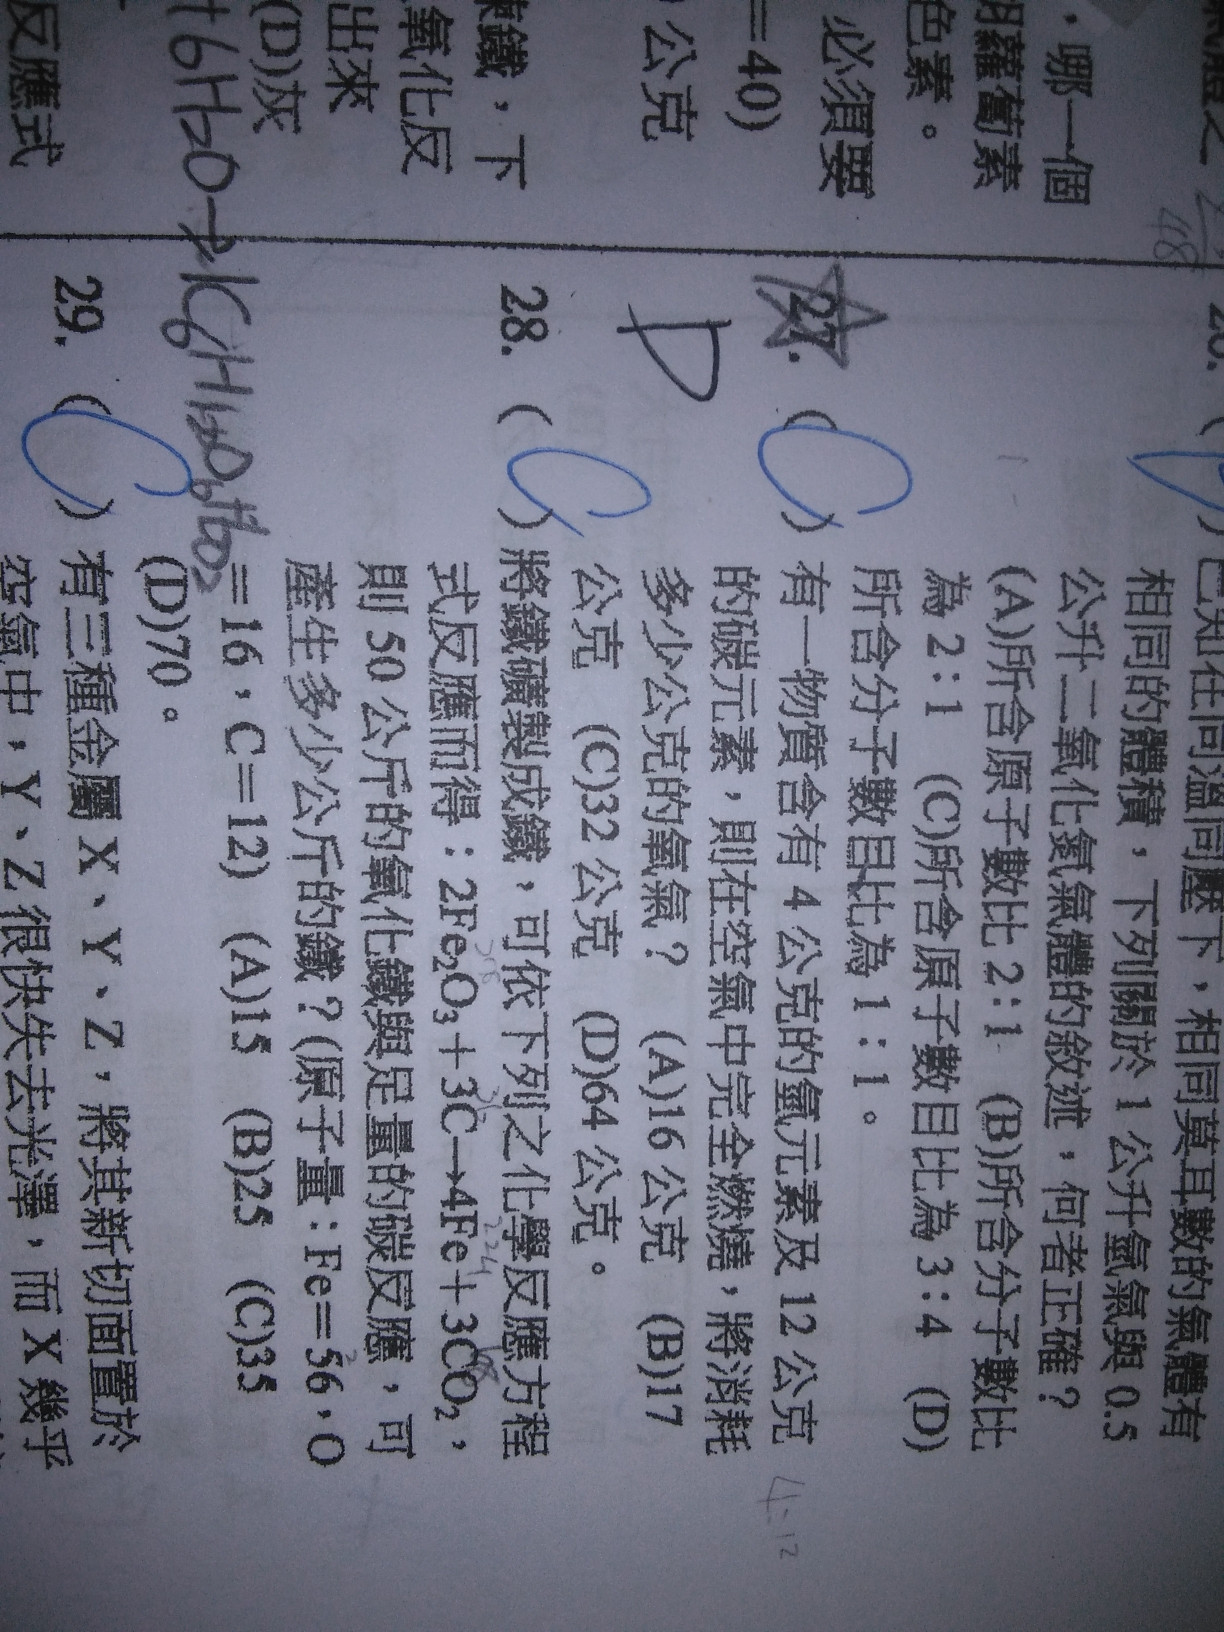 ·哪一個
胡蘿蔔素
色素。
必須要
=40)
公克
鐵,下
氧化反
出來
(D)灰
+6H2O→1C6H12O6+6O2
反應式
48
已知在同溫同壓下,相同莫耳數的氣體有
相同的體積,下列關於 1 公升氫氣與 0.5
公升二氧化氮氣體的敘述,何者正確?
(A)所含原子數比 2:1 (B)所含分子數比
為 2:1 (C)所含原子數目比為 3:4 (D)
所含分子數目比為 1:1。
27. (C) 有一物質含有 4 公克的氫元素及 12 公克
的碳元素,則在空氣中完全燃燒,將消耗
多少公克的氧氣? (A)16 公克 (B)17
公克 (C)32 公克 (D)64 公克。
D
4:12
28. (C) 將鐵礦製成鐵,可依下列之化學反應方程
式反應而得:2Fe2O3+3C→4Fe+3CO2,
224
則 50 公斤的氧化鐵與足量的碳反應,可
產生多少公斤的鐵?(原子量:Fe=56,O
=16,C=12) (A)15 (B)25 (C)35
(D)70。
29. (C) 有三種金屬 X、Y、Z,將其新切面置於
空氣中,Y、Z 很快失去光澤,而 X 幾乎